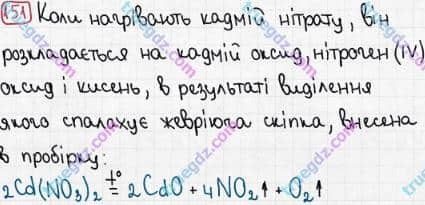 151 Коли нагрівають кадмій нітрату, він
розкладається на кадмій оксид, нітроген (IV)
оксид і кисень, в результаті виділення
якого спалахує жевріюча скіпка, внесена
в пробірку:
2Cd(NO₃)₂ t°= 2CdO + 4NO₂↑ + O₂↑